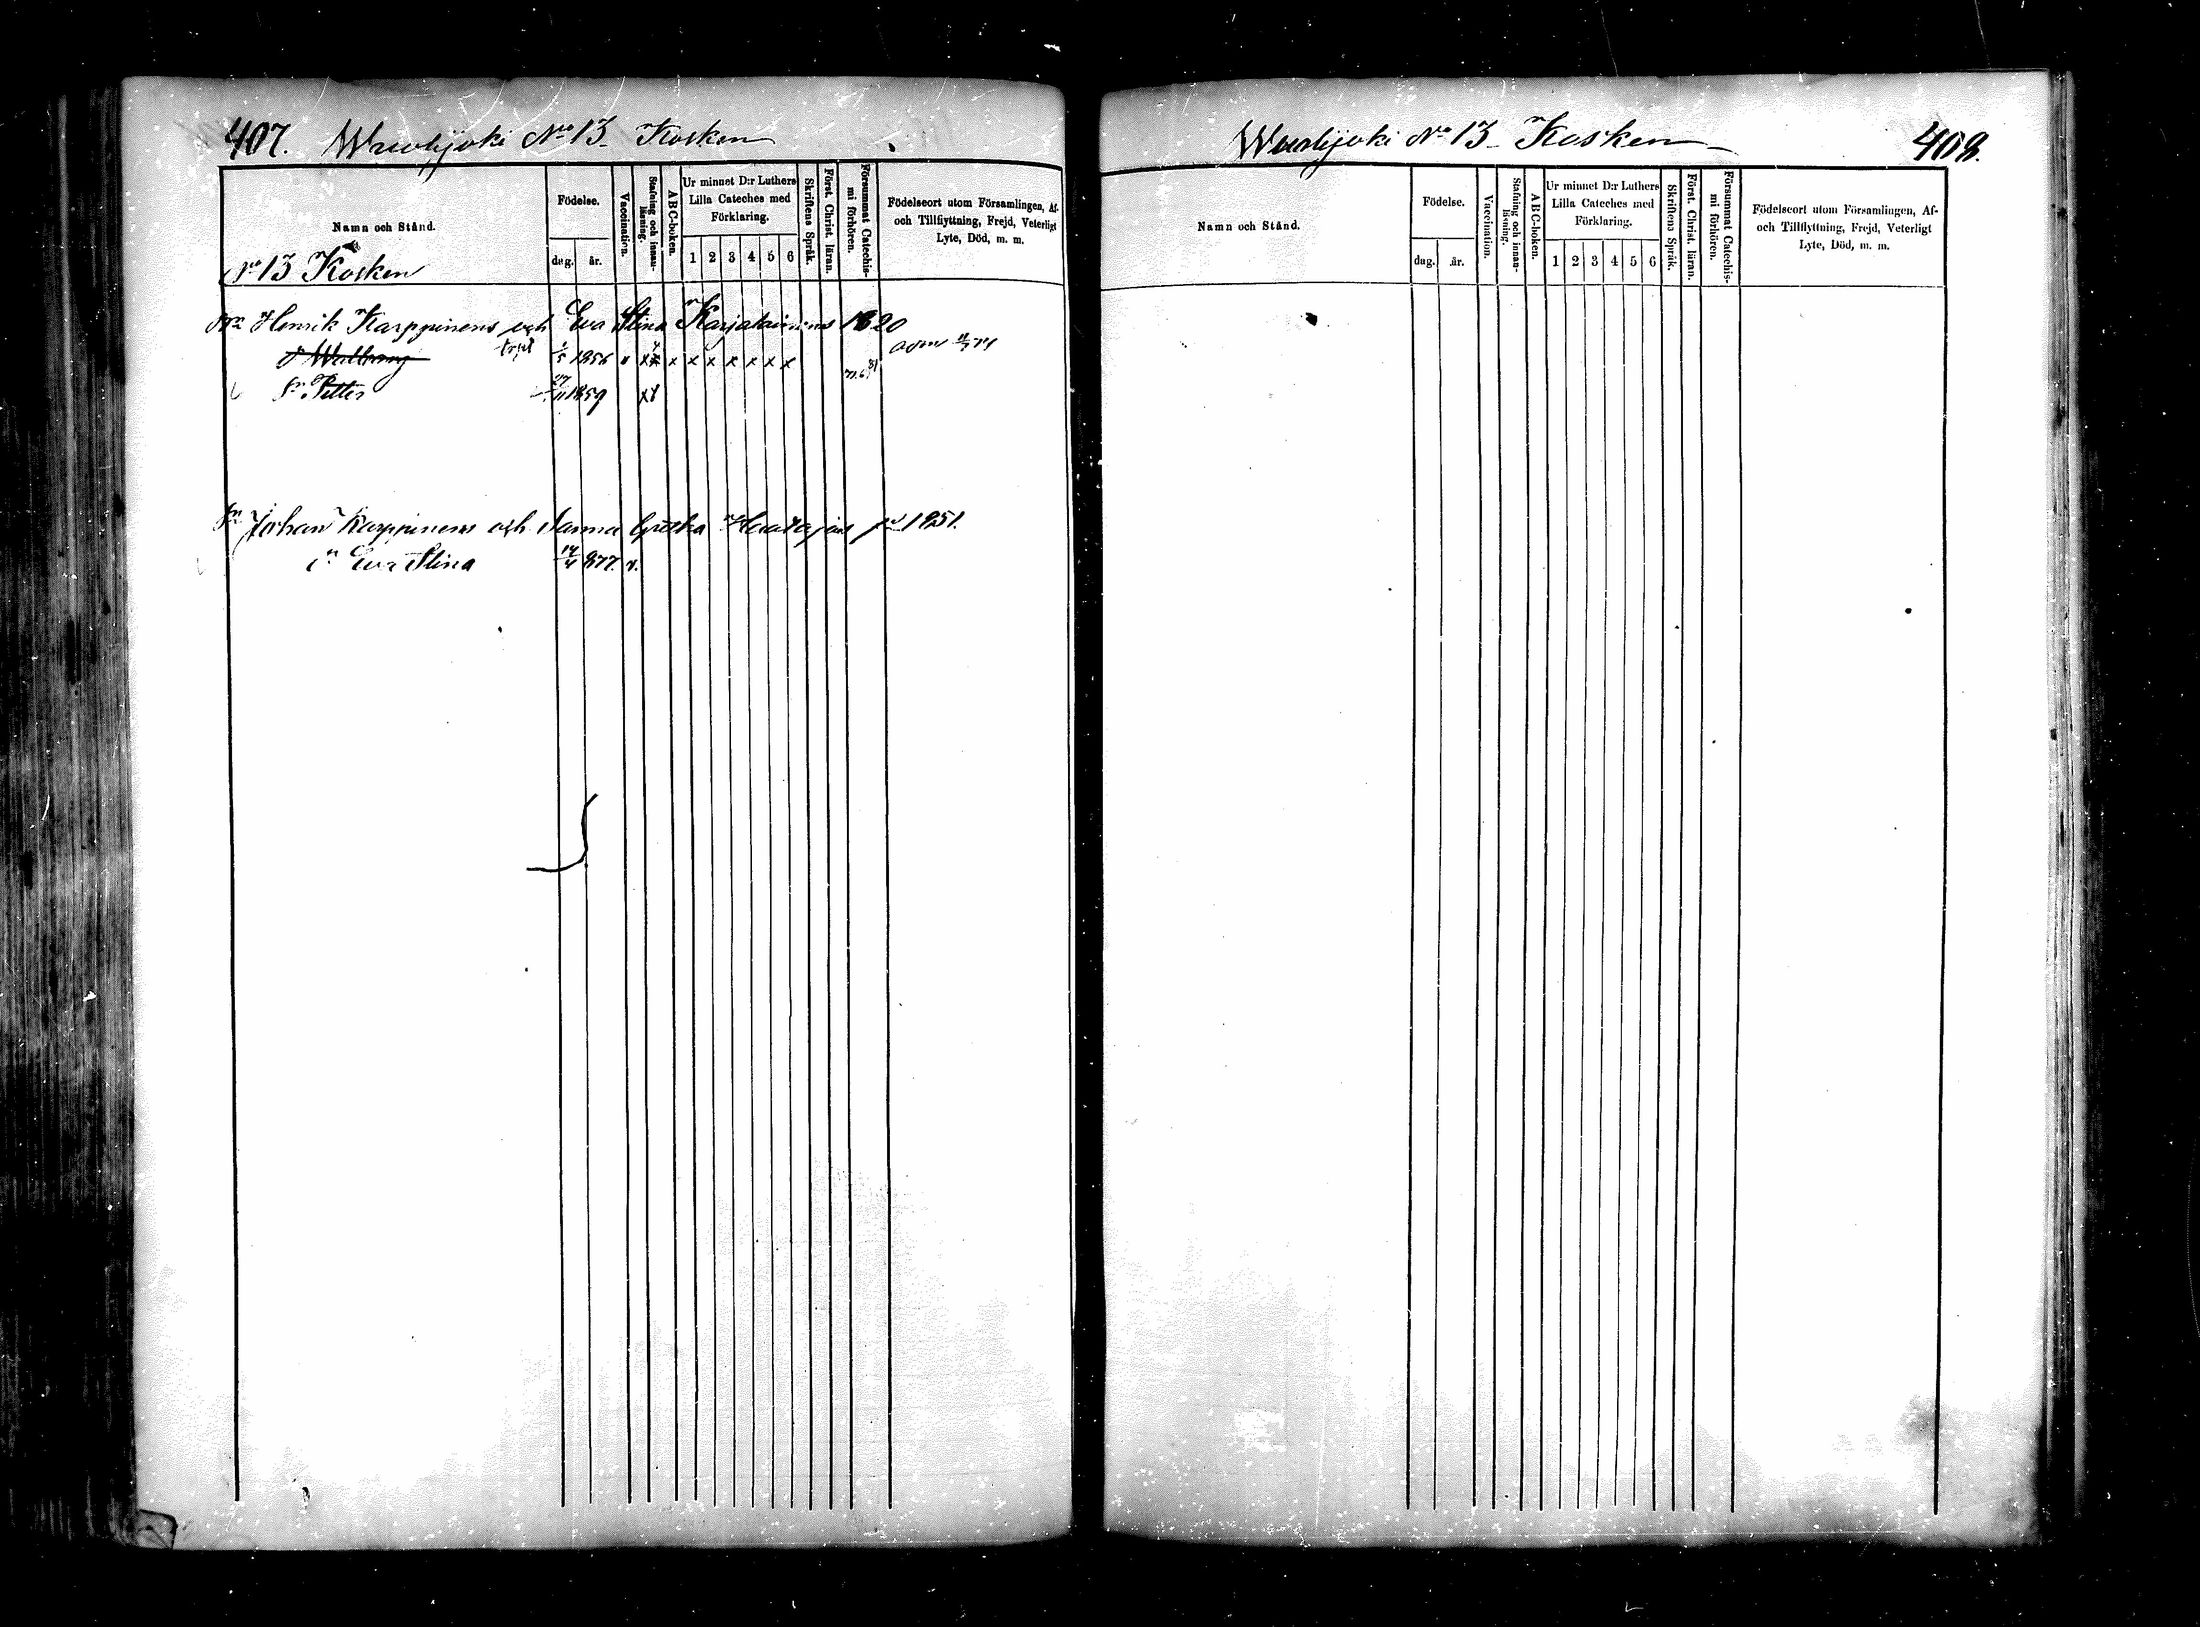 407. Wuolijoki No 13 Kosken
Namn och Stånd.
Födelse.
dag. år.
Vaccination.
Stafning och innan-läsning.
ABC-boken.
Ur minnet D:r Luthers
Lilla Cateches med
Förklaring.
1 2 3 4 5 6
Skriftens Språk.
Först. Christ. läran.
Försummat Catechis-
mi förhören.
Födelseort utom Församlingen, Af-
och Tillflyttning, Frejd, Veterligt
Lyte, Död, m. m.
No 13 Kosken
Henrik Karppinens och Eva Stina Karjalainens 1820
d. Walborg 1/5 1856 " x x x x x x x x x
Sn Petter 27/11 1859 x x
Johan Karppinens och Sanna Greta 1851.
dr Eva Stina 14/4 877. v.
Wuolijoki No 13 Kosken 408.
Namn och Stånd.
Födelse.
dag. år.
Vaccination.
Stafning och innan-
läsning.
ABC-boken.
Ur minnet D:r Luthers
Lilla Cateches med
Förklaring.
1 2 3 4 5 6
Skriftens Språk.
Först. Christ. läran.
Försummat Catechis-
mi förhören.
Födelseort utom Församlingen, Af-
och Tillflyttning, Frejd, Veterligt
Lyte, Död, m. m.